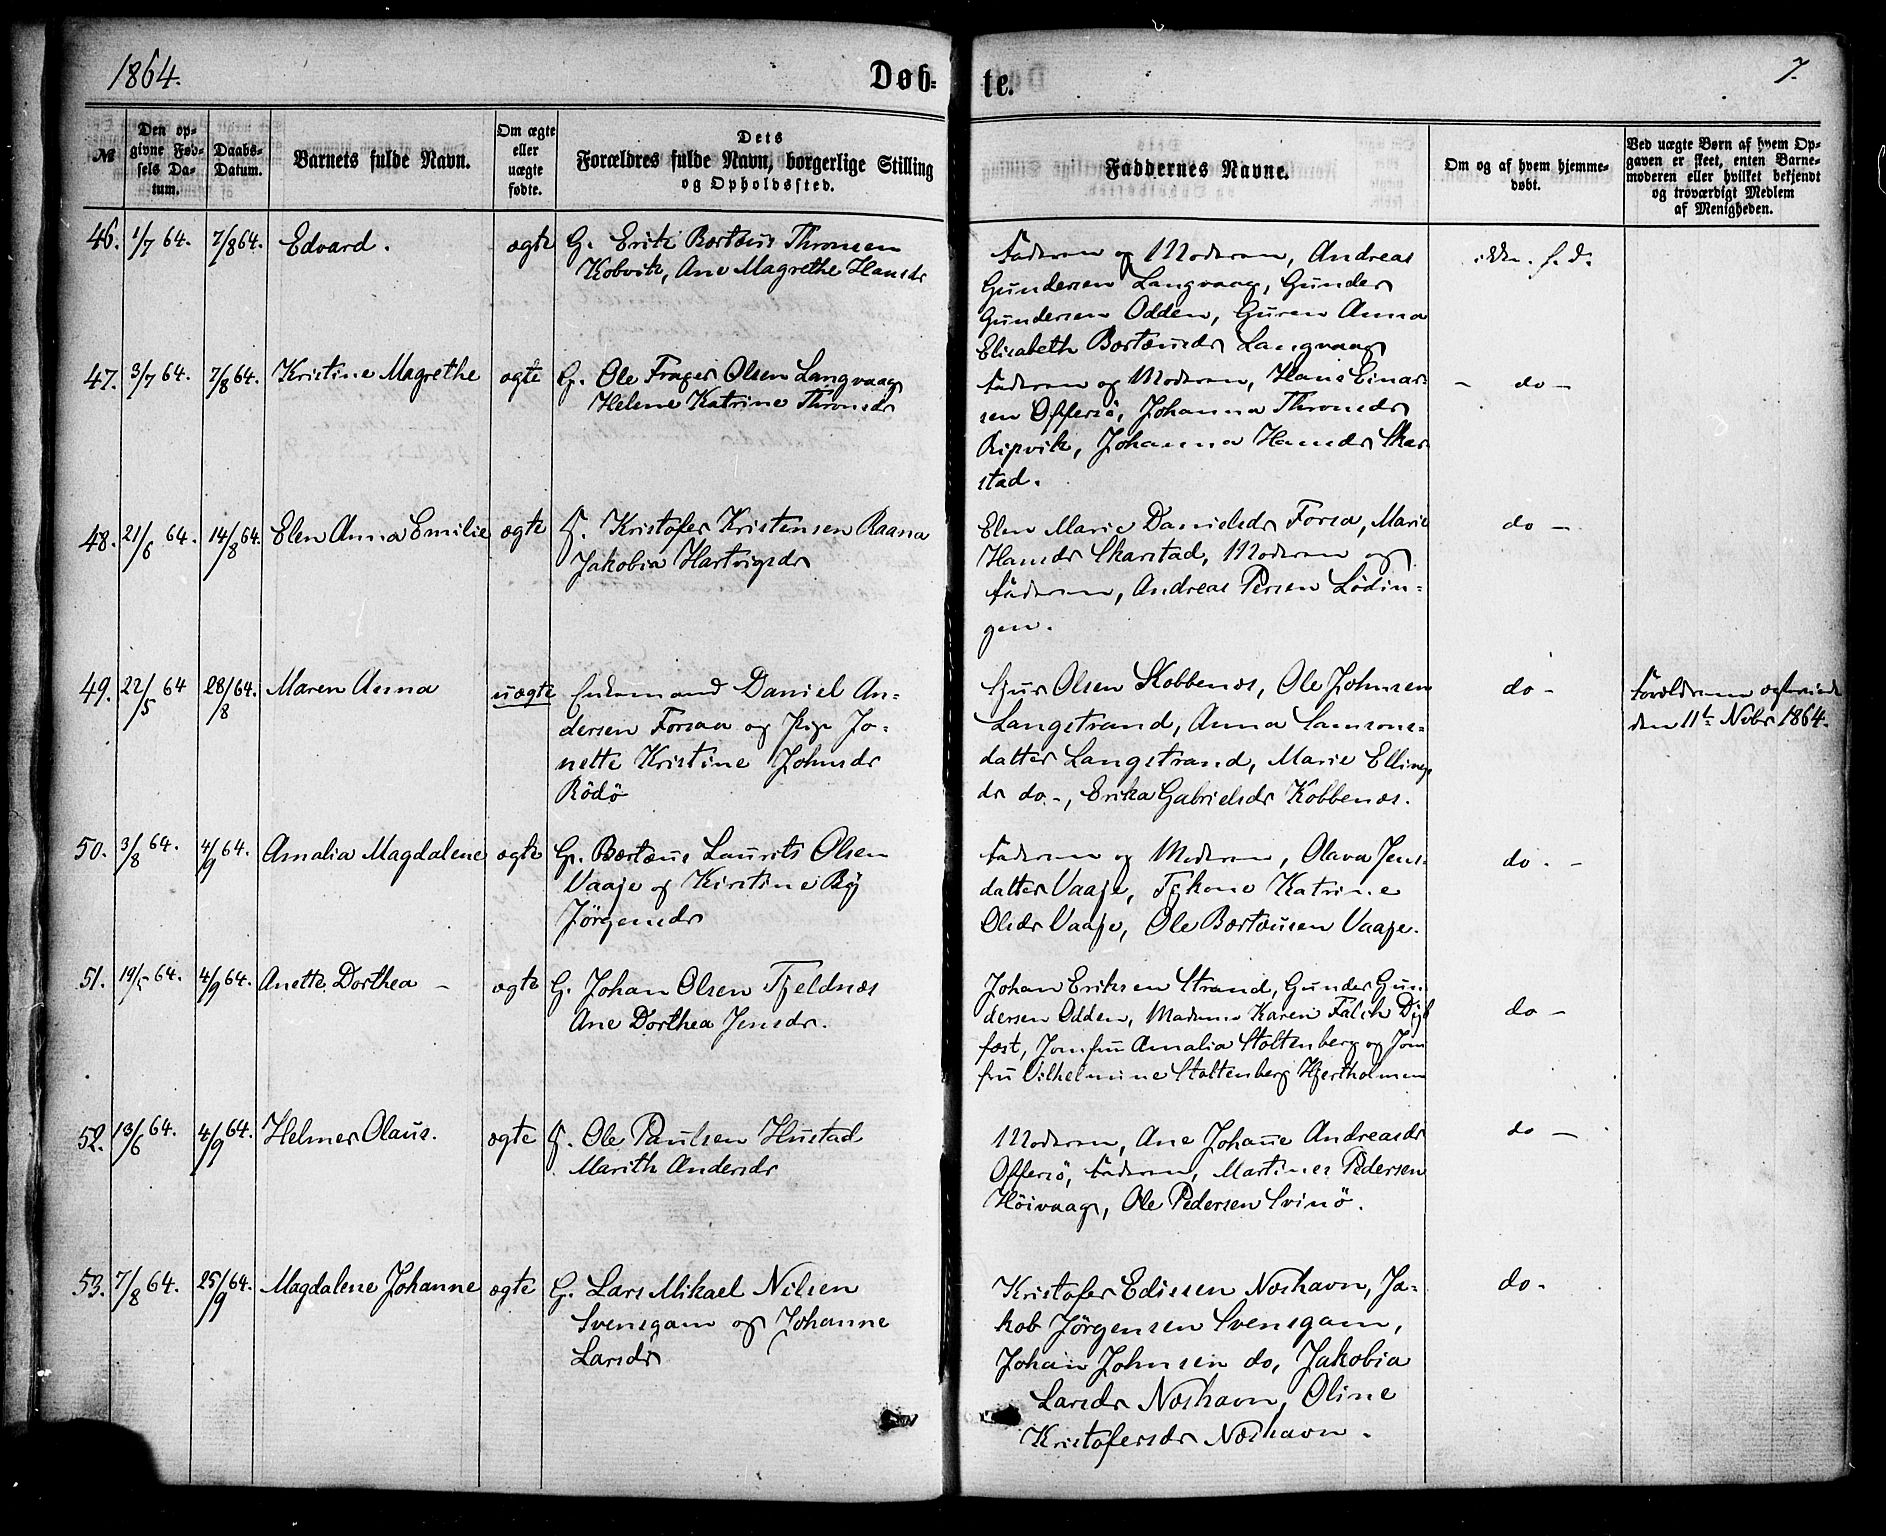 1864.
Døb-
te.
7.
№
Den op-
givne Fød-
sels Da-
tum.
Daabs-
Datum.
Barnets fulde Navn.
Om ægte
eller
uægte
fødte.
Dets
Forældres fulde Navn, borgerlige Stilling
og Opholdssted.
Faddernes Navne.
Om og af hvem hjemme-
døbt.
Ved uægte Børn af hvem Op-
gaven er skeet, enten Barne-
moderen eller hvilket bekjendt
og troværdigt Medlem
af Menigheden.
46. 1/7 64. 7/8 64. Edvard. ægte G. Erik Bærtæus Thronsen
Kobvik, Ane Magrethe Hansdr
Faderen og Moderen, Andreas
Gundersen Langvaag, Gunder
Gundersen Odden, Guren Anna
Elisabeth Bærtæusdr Langvaag
ikke. f. d.
47. 3/7 64. 7/8 64. Kristine Magrethe ægte G. Ole Olsen Langvaag
Helene Katrine Thronsdr
Faderen og Moderen, Hans Einar-
sen Offersö, Johanna Thronsdr
Ripvik, Johanna Hansdr Skar-
stad.
- do -
48. 21/6 64. 14/8 64. Elen Anna Emilie ægte Kristofer Kristensen Raana
Jakobia Hartvigsdr
Elen Marie Danielsdr Forsa, Marie
Hansdr Skarstad, Moderen og
Faderen, Andreas Persen Lödin-
gen.
do -
49. 22/5 64 28/8 64. Maren Anna uægte Enkemand Daniel An-
dersen Forsaa og Pige Jo-
nette Kristine Johnsdr
Rödö
Sjur Olsen Kobbenes, Ole Johnsen
Langstrand, Anna Samsons-
datter Langstrand, Marie Ellings
dr do -, Erika Gabrielsdr Kobbenæs.
do -
Forældrene
den 11te Nvbr 1864.
50. 3/8 64. 4/9 64. Amalia Magdalene ægte G. Bærtæus Laurits Olsen
Vaaje og Kirstine By
Jörgensdr
Faderen og Moderen, Olava Jens-
datter Vaaje, Katrine
Olsdr Vaaje, Ole Bærtæusen Vaaje.
do. -
51. 64. 4/9 64. Anette Dorthea - ægte G. Johan Olsen Tjeldnæs
Ane Dorthea Jensdr.
Johan Eriksen Strand, Gunder Gun-
dersen Odden, Madame Karen Falch
Jomfru Amalia Stoltenberg og Jom
fru Vilhelmine Stoltenberg Hjertholmen
do -
52. 13/6 64. 4/9 64. Helmer Olaus. ægte Ole Paulsen Hustad
Marith Andersdr
Moderen, Ane Johanne Andreasdr
Offersö, Faderen, Martines Pedersen
Höivaag, Ole Pedersen Svinö.
do -
53. 7/8 64. 25/9 64. Magdalene Johanne ægte G. Lars Mikael Nilsen
Svensgam og Johanne
Larsdr
Kristofer Edissen Næshavn, Ja-
kob Jörgensen Svensgam,
Johan Johnsen do, Jakobia
Larsdr Næshavn, Oline
Kristofersdr Næshavn.
do -